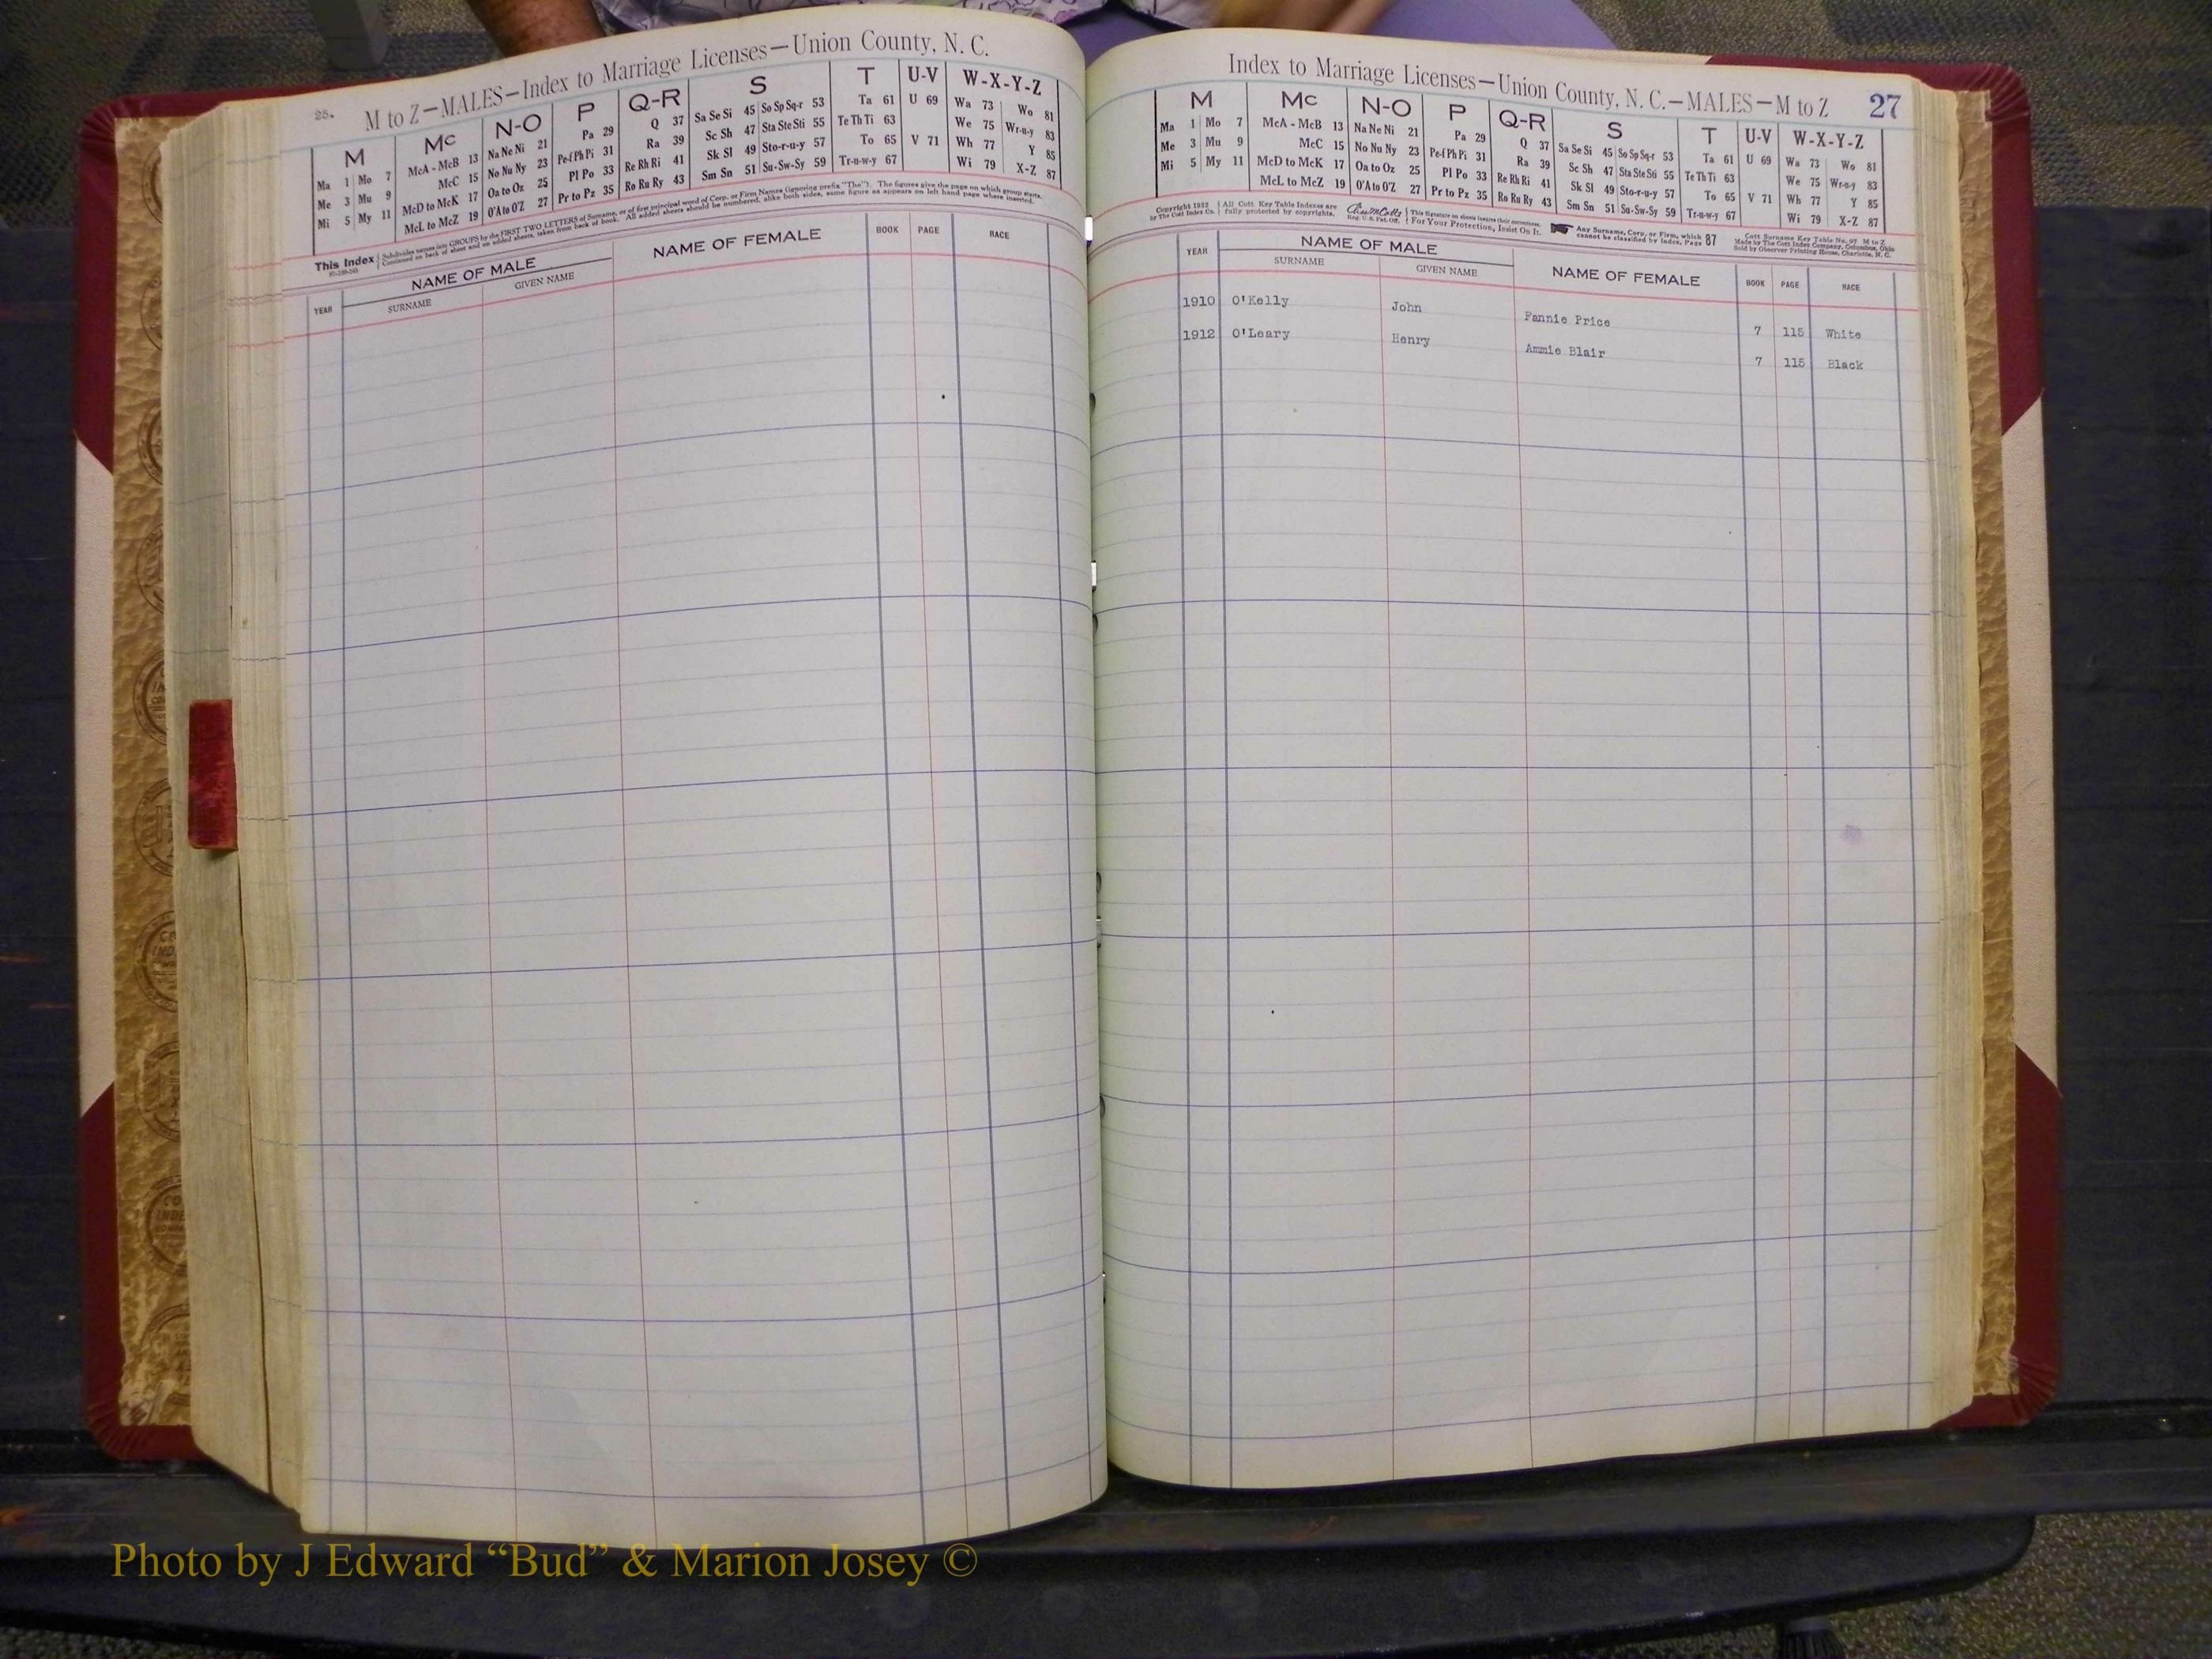 25.
M to Z—MALES—Index to Marriage Licenses—Union County, N. C.
M Mc N-O P Q-R S T U-V W-X-Y-Z
Ma 1 Mo 7 McA - McB 13 Na Ne Ni 21 Pa 29 Q 37 Sa Se Si 45 So Sp Sq-r 53 Ta 61 U 69 Wa 73 Wo 81
Me 3 Mu 9 McC 15 No Nu Ny 23 Pe-f Ph Pi 31 Ra 39 Sc Sh 47 Sta Ste Sti 55 Te Th Ti 63 We 75 Wr-u-y 83
Mi 5 My 11 McD to McK 17 Oa to Oz 25 Pl Po 33 Re Rh Ri 41 Sk Sl 49 Sto-r-u-y 57 To 65 V 71 Wh 77 Y 85
McL to McZ 19 O'A to O'Z 27 Pr to Pz 35 Ro Ru Ry 43 Sm Sn 51 Su-Sw-Sy 59 Tr-u-w-y 67 Wi 79 X-Z 87
This Index Subdivides names into GROUPS by the FIRST TWO LETTERS of Surname, or of first principal word of Corp. or Firm Names (ignoring prefix "The"). The figures give the page on which group starts.
Continued on back of sheet and on added sheets, taken from back of book. All added sheets should be numbered, alike both sides, same figure as appears on left hand page where inserted.
YEAR NAME OF MALE NAME OF FEMALE BOOK PAGE RACE
SURNAME GIVEN NAME
Index to Marriage Licenses—Union County, N. C.—MALES—M to Z 27
M Mc N-O P Q-R S T U-V W-X-Y-Z
Ma 1 Mo 7 McA - McB 13 Na Ne Ni 21 Pa 29 Q 37 Sa Se Si 45 So Sp Sq-r 53 Ta 61 U 69 Wa 73 Wo 81
Me 3 Mu 9 McC 15 No Nu Ny 23 Pe-f Ph Pi 31 Ra 39 Sc Sh 47 Sta Ste Sti 55 Te Th Ti 63 We 75 Wr-u-y 83
Mi 5 My 11 McD to McK 17 Oa to Oz 25 Pl Po 33 Re Rh Ri 41 Sk Sl 49 Sto-r-u-y 57 To 65 V 71 Wh 77 Y 85
McL to McZ 19 O'A to O'Z 27 Pr to Pz 35 Ro Ru Ry 43 Sm Sn 51 Su-Sw-Sy 59 Tr-u-w-y 67 Wi 79 X-Z 87
Copyright 1932 by The Cott Index Co. All Cott Key Table Indexes are fully protected by copyrights. Reg. U. S. Pat. Off. This Signature on sheets insures their correctness. For Your Protection, Insist On It. Any Surname, Corp. or Firm, which cannot be classified by Index, Page 87 Cott Surname Key Table No. 97 M to Z
Made by The Cott Index Company, Columbus, Ohio
Sold by Observer Printing House, Charlotte, N. C.
YEAR NAME OF MALE NAME OF FEMALE BOOK PAGE RACE
SURNAME GIVEN NAME
1910 O'Kelly John Fannie Price 7 115 White
1912 O'Leary Henry Ammie Blair 7 115 Black
Photo by J Edward “Bud” & Marion Josey ©